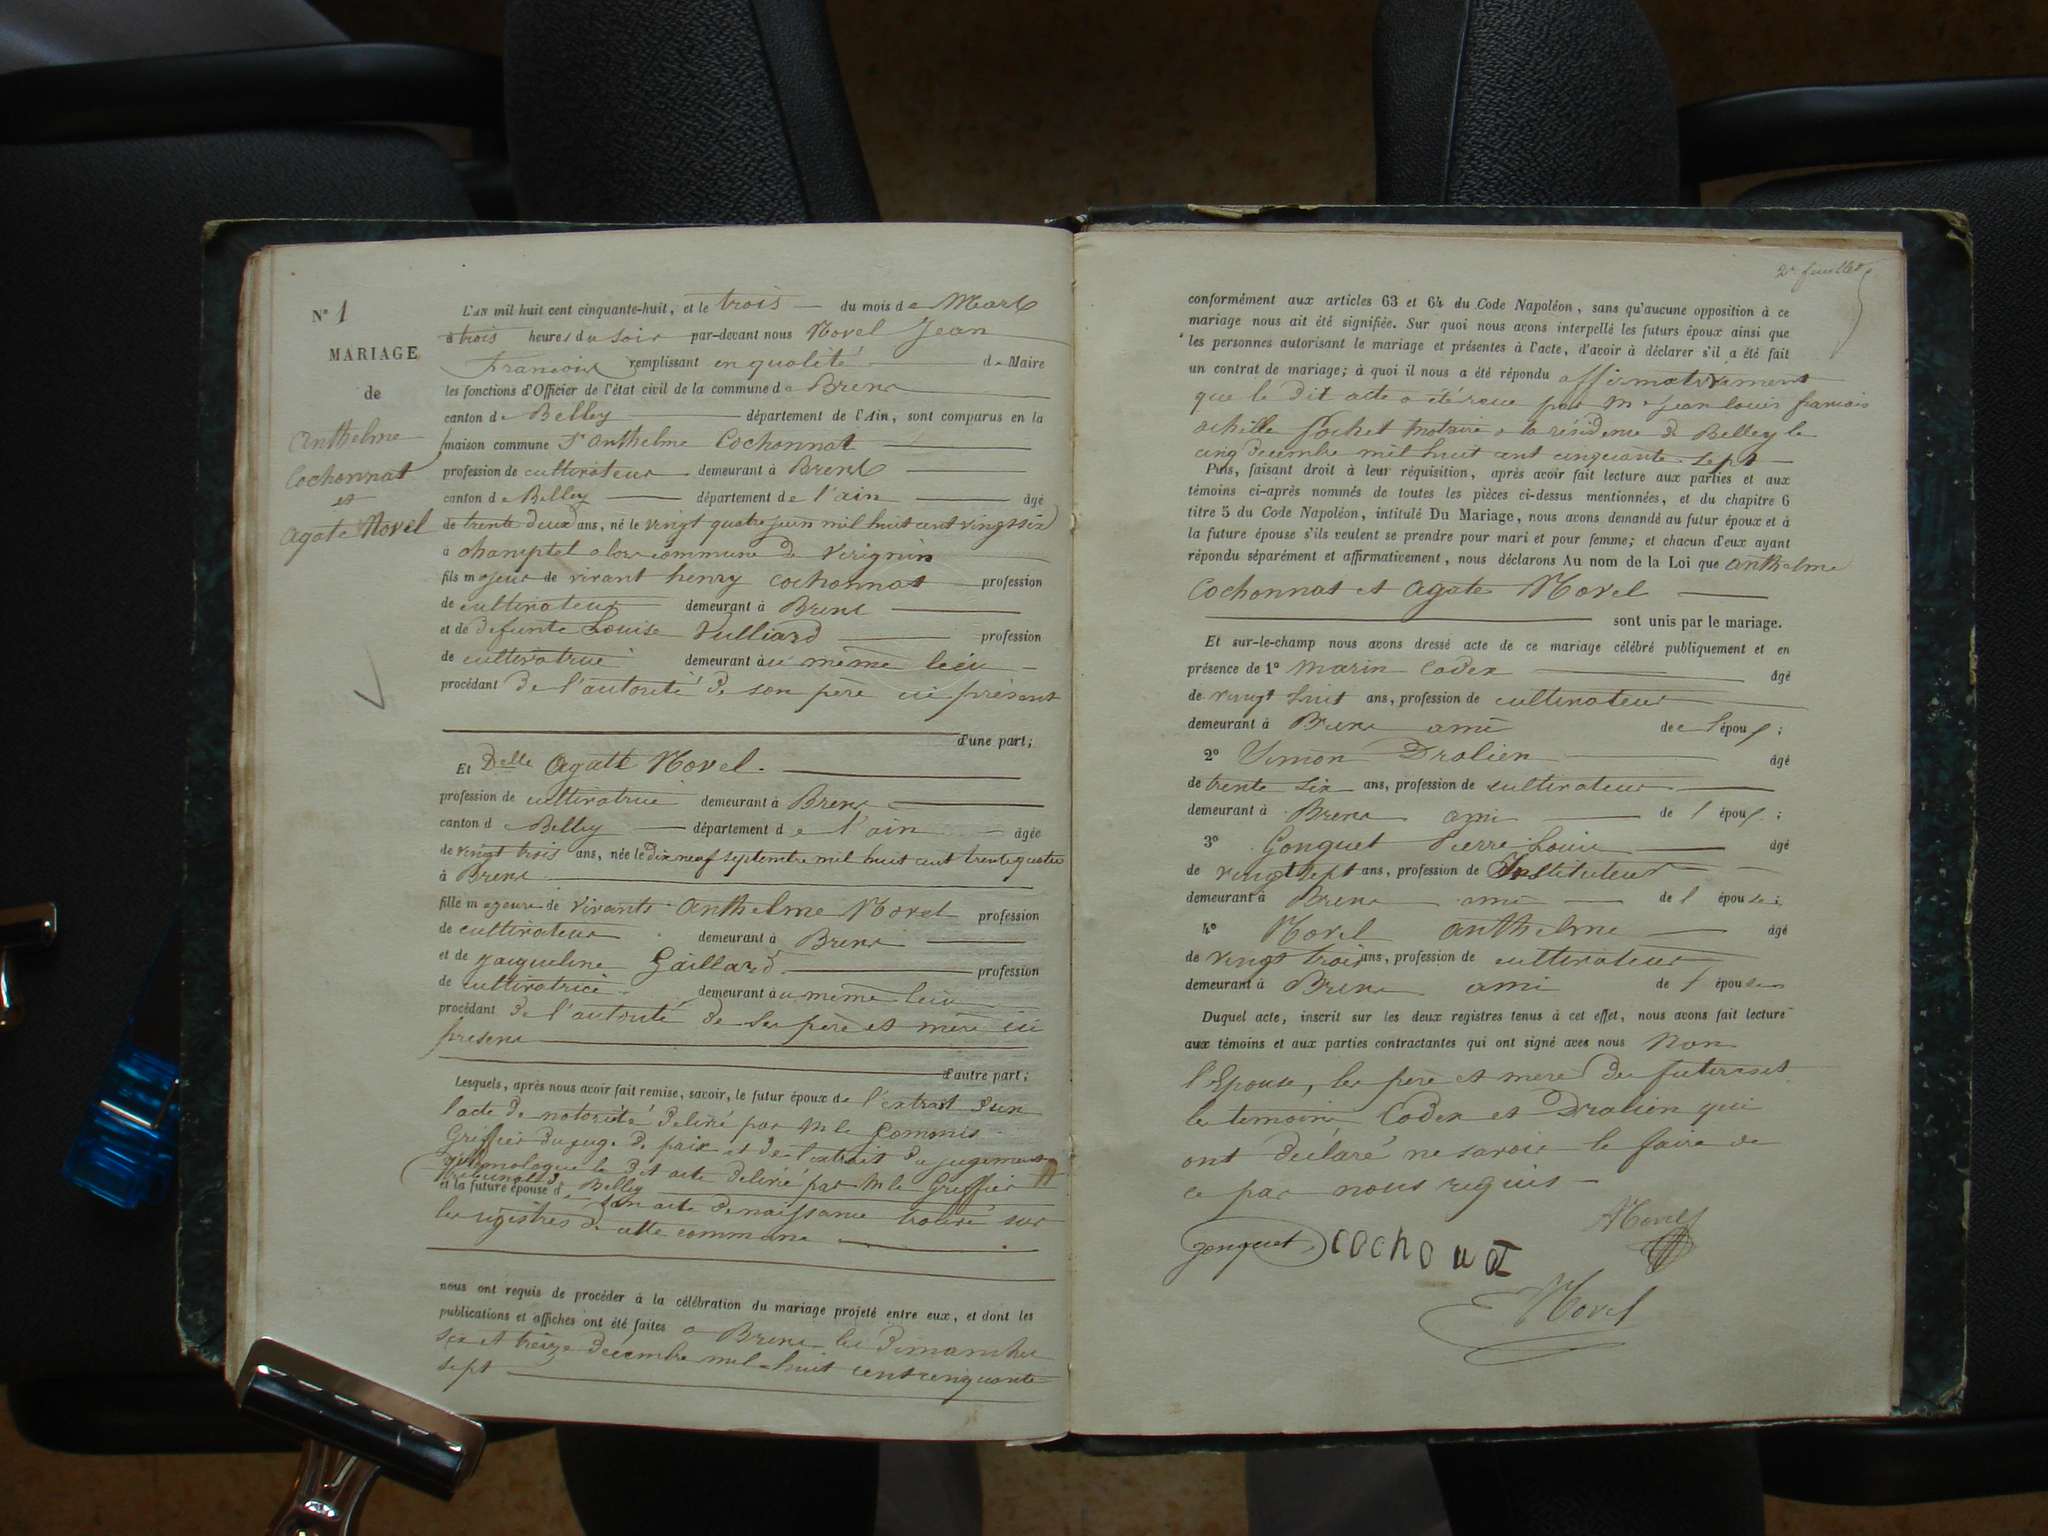 N° 1
MARIAGE
de
Anthelme
Cochonnat
et
Agate Novel
L'AN mil huit cent cinquante-huit, et le trois du mois de Mars
à trois heures du soir par-devant nous Novel Jean
francois remplissant en qualité de Maire
les fonctions d'Officier de l'état civil de la commune de Brens
canton de Belley département de l'Ain, sont comparus en la
maison commune Sr anthelme Cochonnat
profession de cultivateur demeurant à Brens
canton de Belley département de l'ain âgé
de trente deux ans, né le vingt quatre juin mil huit cent vingt six
à champtel commune de virignin
fils majeur de vivant henry cochonnat profession
de cultivateur demeurant à Brens
et de defunte Louise Vulliard profession
de cultivatrice demeurant au même lieu
procédant de l'autorité de son père ici présent
d'une part;
Et Delle Agatt Novel
profession de cultivatrice demeurant à Brens
canton de Belley département de l'ain âgée
de vingt trois ans, née le dix neuf septembre mil huit cent trente quatre
à Brens
fille majeure de vivants Anthelme Novel profession
de cultivateur demeurant à Brens
et de jacqueline Gaillard profession
de cultivatrice demeurant au même lieu
procédant de l'autorité de ses père et mère ici
présens
d'autre part;
Lesquels, après nous avoir fait remise, savoir, le futur époux de l'extrait d'un
l'acte de notoriété délivré par Mr le Commis
Griffier du juge de paix et de l'extrait du jugement
homologue le dit acte délivré par Mr le Griffier
et la future épouse de Belley
son acte de naissance trouvé sur
les registres de cette commune
nous ont requis de procéder à la célébration du mariage projeté entre eux, et dont les
publications et affiches ont été faites à Brens les dimanches
six et treize decembre mil huit cent cinquante
sept
2e feuillet
conformément aux articles 63 et 64 du Code Napoléon, sans qu'aucune opposition à ce
mariage nous ait été signifiée. Sur quoi nous avons interpellé les futurs époux ainsi que
les personnes autorisant le mariage et présentes à l'acte, d'avoir à déclarer s'il a été fait
un contrat de mariage; à quoi il nous a été répondu affirmativement
que le dit acte a été recue par Mr jean louis francois
achille Sochet Notaire a la résidence de Belley le
cinq decembre mil huit cent cinquante sept
Puis, faisant droit à leur réquisition, après avoir fait lecture aux parties et aux
témoins ci-après nommés de toutes les pièces ci-dessus mentionnées, et du chapitre 6
titre 5 du Code Napoléon, intitulé Du Mariage, nous avons demandé au futur époux et à
la future épouse s'ils veulent se prendre pour mari et pour femme; et chacun d'eux ayant
répondu séparément et affirmativement, nous déclarons Au nom de la Loi que anthelme
Cochonnat et Agate Novel
sont unis par le mariage.
Et sur-le-champ nous avons dressé acte de ce mariage célébré publiquement et en
présence de 1° Marin Codex âgé
de vingt huit ans, profession de cultivateur
demeurant à Brens ami de l'époux;
2° Simon Dralien âgé
de trente six ans, profession de cultivateur
demeurant à Brens ami de l'époux;
3° Gonguet Pierre Louis âgé
de vingt sept ans, profession de Instituteur
demeurant à Brens ami de l'épouse;
4° Novel anthelme âgé
de vingt trois ans, profession de cultivateur
demeurant à Brens ami de l'épouse
Duquel acte, inscrit sur les deux registres tenus à cet effet, nous avons fait lecture
aux témoins et aux parties contractantes qui ont signé avec nous Non
l'Epouse, les père et mere du futur et
le temoins Codex et Dralien qui
ont déclaré ne savoir le faire de
ce par nous requis
ANovel
gonguet cochonat
Novel